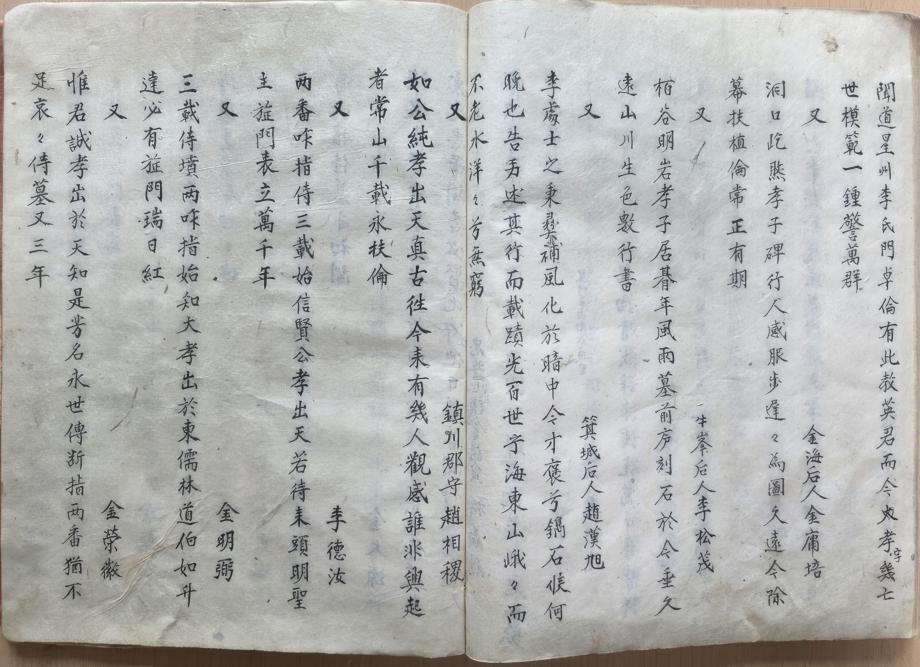 聞道星州李氏門卓倫有此救英君而今大孝幾七
世模範一鍾警萬群
又 金海后人金庸培
洞口屹然孝子碑行人感服步遲々為圖久遠今除
幕扶植倫常正有期
又 牛峯后人李松茂
栢谷明岩孝子居暮年風雨墓前庐刻石於今垂久
遠山川生色數行書
又 箕城后人趙漢旭
李處士之秉彛補風化於暗中今才褒兮鐫石候何
晩也告吾述其行而載蹟光百世亏海東山峨々而
不老水洋々兮無窮
又 鎮川郡守趙相稷
如公純孝出天真古徃今来有幾人觀感誰非興起
者常山千載永扶倫
又 李德汝
两番咋指侍三載始信賢公孝出天若待来頭明聖
主㫌門表立萬千年
又 金明弼
三載侍墳两咋指始知大孝出於東儒林道伯如升
達必有㫌門瑞日紅
又 金榮徽
惟君誠孝出於天知是芳名永世傳断指两番猶不
足哀々侍墓又三年